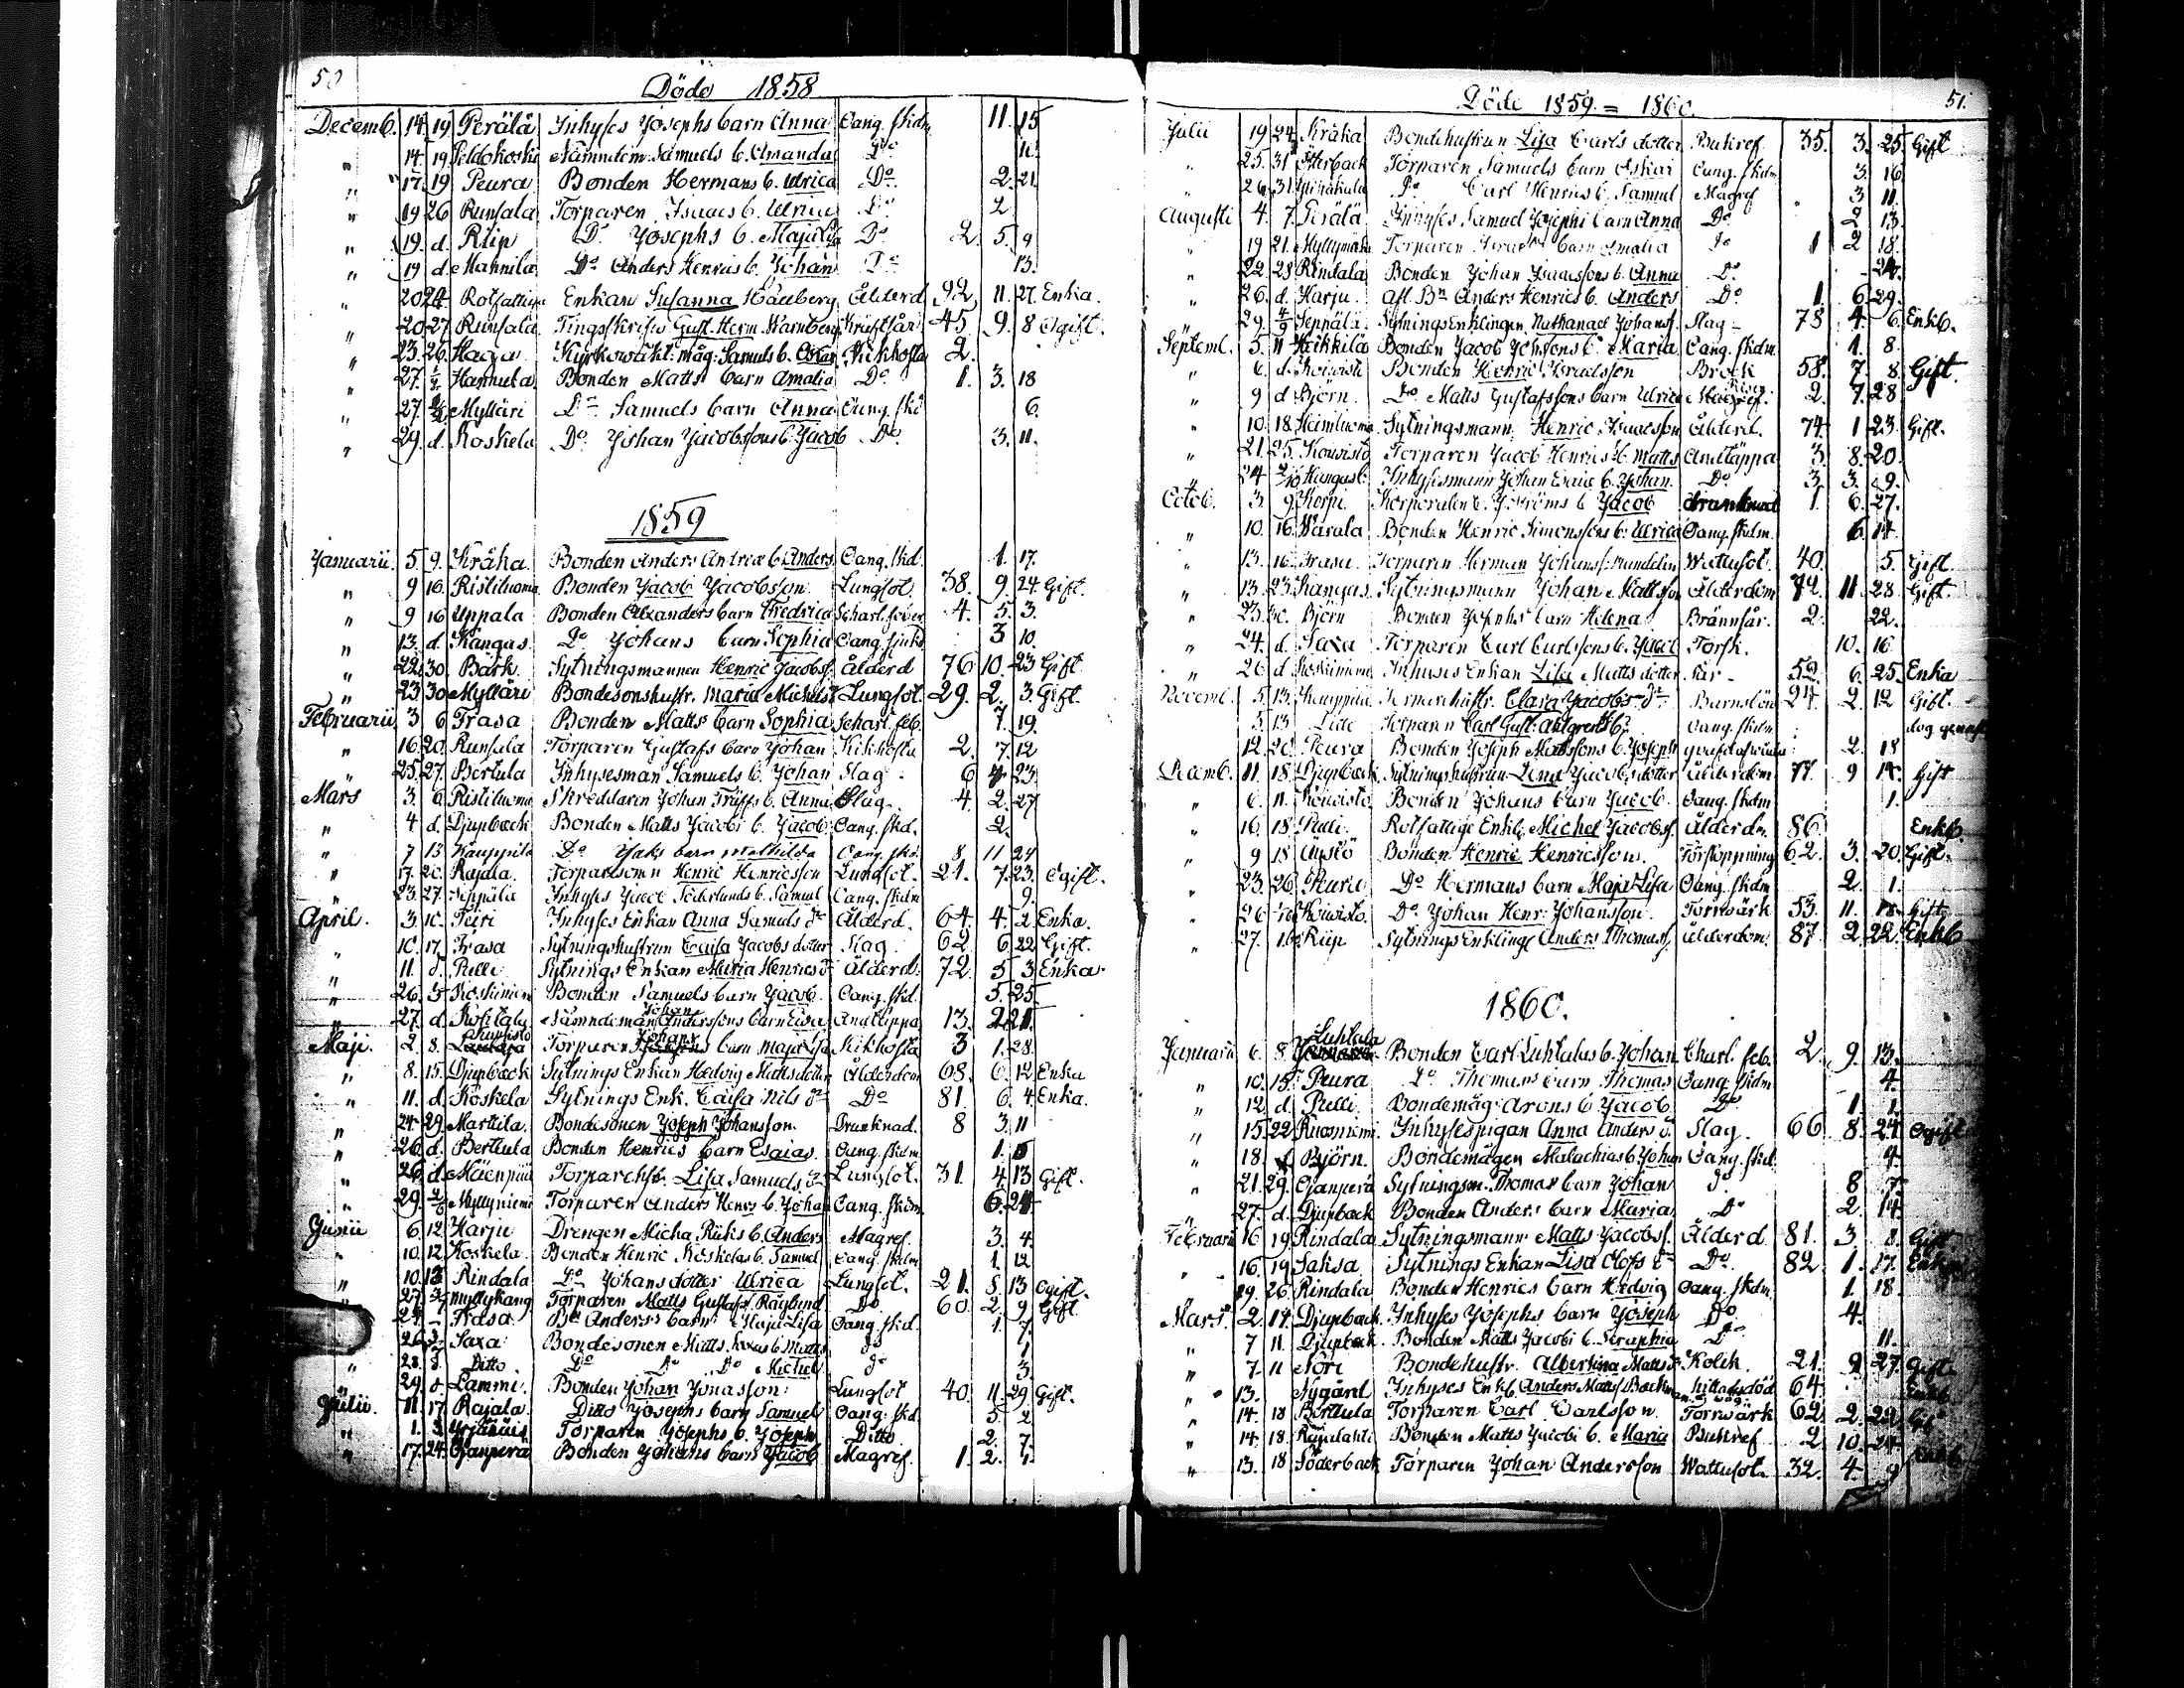 50
Döde 1858
Decemb. 14 19 Perälä Inhyses Josephs barn Anna Oang. skdm 11. 15
" 14. 19 Peldokoski Nämndem: Samuels b. Amanda Do
" 17. 19 Peura Bonden Hermans b. Ulrica Do 2. 21.
" 19 26 Runsala Torparen Isaacs b. Ulrica Do 2
" 19. d. Riip Do Josephs b. Maja Lisa Do 2 5. 9
" 19 d. Mannila Do Anders Henrics b. Johan Do 13.
" 20 24 Rotfattiga Enkan Susanna Hauberg Ålderd. 92. 11. 27. Enka.
" 20 27 Runsala Tingsskrifv. Gust. Herm. Warnberg Kräftsår 45. 9. 8 Ogift.
" 23. 26. Haga Kyrkowäkt: måg: Samuels b. Oskar Kikhosta 2.
" 27. Hannula Bonden Matts barn Amalia Do 1. 3. 18
" 27. Mylläri Do Samuels barn Anna Oang. skd 6.
" 29. d. Koskela Do Johan Jacobssons b. Jacob Do 3. 11.
1859
Januarii. 5. 9. Kråka Bonden Anders Andreæ b. Anders Oang. skd. 1. 17.
" 9 16. Ristiluoma Bonden Jacob Jacobsson Lungsot. 38. 9. 24. Gift.
" 9 16 Uppala Bonden Alexanders barn Fredrica Scharl. feber 4. 5. 3.
" 13. d. Kangas Do Johans barn Sophia Oang. sjukd 3 10.
" 22. 30. Bärk. Sytningsmannen Henric Jacobss. Ålderd 76 10. 23 Gift.
" 23 30 Mylläri Bondesonshustr. Maria Michelsd. Lungsot. 29. 2. 3. Gift.
Februarii 3 6 Frasa Bonden Matts barn Sophia Scharl. feb. 7 19.
" 16. 20. Runsala Torparen Gustafs barn Johan Kikhosta 2. 7. 12
" 25. 27. Bertula Inhysesman Samuels b. Johan Slag 6 4. 23
Mars 3. 6 Ristiluoma Skreddaren Johan Träffs b. Anna Slag. 4. 2. 27
" 4 d. Djupback Bonden Matts Jacobi b. Jacob Oang. skd. 2.
" 7 13. Kauppila Do Jaks barn Mathilda Oang. skd. 8 11 24
" 17. 20. Rajala. Torparsonen Henric Henricsson Lungsot. 21. 7. 23. Ogift.
" 23. 27. Seppälä Inhyses Jacob Söderlunds b. Samuel Oang. skdm 9.
April. 3. 10. Inhyses Enkan Anna Samuels dr Ålderd. 64. 4. 2 Enka.
" 10. 17. Frasa Sytningshustrun Caisa Jacobs dotter Slag. 62 6 22 Gift.
" 11. d. Pelli Sytnings Enkan Maria Henrics dr Ålderd. 72. 5 3. Enka.
" 26. d. Koskiniemi Bonden Samuels barn Jacob. Oang. skd. 5. 25.
" 27. d. Nämndeman Johan Anderssons barn Andtäppa 13. 2. 21.
Maji. 2. 8. Torparen Johans barn Maja Lisa Kikhosta 3 1. 28.
" 8. 15. Djupback Sytnings Enkan Hedvig Mattsdotter Ålderdom 68. 6. 12 Enka
" 11. d. Koskela Sytnings Enk. Caisa Nils dr Do 81. 6. 4. Enka.
" 24 29. Marttila. Bondesonen Joseph Johansson. Drunknad. 8 3. 11
" 26 d. Berttula Bonden Henrics barn Esaias. Oang. skdm 1.
" 26 d. Mäenpää Torparehst. Lisa Samuels dr Lungsot. 31. 4. 13 Gift.
" 29. Myllyniemi Torparen Anders Henrs b. Johan Oang. skdm 6. 24
Junii 6. 12 Harju Drengen Micha b. Anders Magref. 3. 4
" 10. 12. Koskela. Bonden Henric Koskelas b. Samuel Oang. skdm 1. 12
" 10. Rindala Do Johans dotter Ulrica Lungsot. 21. 8 13 Ogift.
" 27. Myllykang Torparen Matts Gustafss Räglund Do 60. 2. 9 Gift.
" 24. Frasa. Do Anders barn Maja Lisa Oang. skd. 1. 7.
" 26. Saxa: Bondesonen Matts Saxas b. Matts Do 1
" 28. d. Ditto. Do Do Do Michel. Do 3.
" 29. d. Lammi. Bonden Johan Jonasson: Lungsot 40. 11. 29 Gift.
Julii. 11. 17. Rajala. Ditto Josephs barn Samuel Oang. skd. 5. 2
" 1. 3. Torparen Josephs b. Joseph Ditto 2. 7.
" 17. 24. Ojanperä Bonden Johans barn Jacob Magref. 1. 2.
51.
Döde 1859. = 1860.
Julii 19 24 Kråka Bondehustrun Lisa Carls dotter Bukref. 35. 3. 25 Gift
" 25. 31 Torparen Samuels barn Oskar Oang. skdm 3. 16
" 26. 31 Do Carl Henrics b. Samuel Magref 3 11.
Augusti 4. 7. Perälä Inhyses Samuel Josephi barn Anna Do 2 13.
" 19 21. Myllymäki Torparen barn Amalia Do 1 2 18.
" 22. 28 Rindala Bonden Johan Isaacssons b. Anna Do 24.
" 26. d. Harju. Afl. Bn Anders Henrics b. Anders Do 1. 6. 29.
" 29. Seppälä Sytnings Enklingen Nathanael Johanss. Slag 78 4. 6. Enkl.
Septemb. 5. 11 Heikkilä Bonden Jacob Johssons b. Maria Oang. skdm. 1. 8.
" 6. d. Koivisto Bonden Henric Israelsson Bråck 58. 7. 8 Gift.
" 9 d. Björn. Do Matts Gustafssons barn Ulrica 2. 7. 28
" 10. 18. Heimluoma Sytningsmann. Henric Isaacsson Ålderd. 74. 1 23. Gift.
" 21. 25. Koivisto Torparen Jacob Henrics b. Matts Andtäppa 3. 8. 20.
" 24 Kangas Inhysesmann Johan b. Johan. Do 3. 3. 9.
Octob. 3. 9. Korpi. Korporalen b. Jacob Drunknad 1. 6. 27.
" 10. 16. Warala Bonden Henric Simonssons b. Ulrica Oang. skdm. 6 14.
" 13. 16. Frasa Torparen Herman Johanss: Sundelin Wattusot. 40. 5. Gift.
" 13. 23. Kangas. Sytningsmann Johan Mattsson Ålderdom 72. 11. 28. Gift.
" 23. 30. Björn Bonden Josephs barn Helena Brännsår. 2. 22.
" 24. d. Saxa Torparen Carl Carlssons b. Jacob Torsk. 10. 16
" 26 d. Koskiniemi Inhyses Enkan Lisa Matts dotter Sår 59. 6. 25. Enka
Novemb. 5. 13. Kauppila Clara Jacobs dr Barnsbörd 24. 2. 12 Gift.
" 3 13. Carl Gust. Ahlgrens b. Oang. skdm
" 12. 20. Peura Bonden Joseph Mattssons b. Joseph 2. 18
Decemb. 11. 18. Djupback Sytningshustrun Lena Jacobsdotter Ålderdom 77. 9 14. Gift
" 6. 11. Koivisto Bonden Johans barn Jacob. Oang. skdm 1.
" 16. 18. Pelli. Rotfattige Enkl. Michel Jacobss. Ålderdm. 86 Enkl.
" 9 18 Bonden Henric Henricsson. Förstoppning 62. 3. 20. Gift.
" 23. 26. Peura Do Hermans barn Maja Lisa Oang. skdm 2. 1.
" 26 Koivisto. Do Johan Henr: Johansson. Torrvärk 53. 11. 18. Gift
" 27. Riip Sytnings Enklingl Anders Thomass. Ålderdom. 87. 2. 22. Enkl
1860.
Januarii 6. 8. Luhtala Bonden Carl Luhtalas b. Johan Charl. feb. 2. 9. 13.
" 10. 15. Peura Do Thomas barn Thomas Oang. skdm 4.
" 12. d. Pelli. Bondemåg: Arons b. Jacob Do 1 1.
" 15. 22. Ruosniemi. Inhysespigan Anna Anders d. Slag. 66 8. 24. Ogift
" 18. Björn. Bondemågen Malachias b. Johan Oang. skd. 4.
" 21. 29. Ojanperä Sytningsm. Thomas barn Johan Do 8 7
" 27. d. Djupback Bonden Anders barn Maria Do 2. 14.
Februarii 16 19. Rindala Sytningsmann Matts Jacobss. Ålderd. 81. 3 8. Gift
" 16. 19 Saksa. Sytnings Enkan Lisa Olofs dr Do 82 1. 17. Enka
" 19. 26. Rindala Bonden Henrics barn Hedvig Oang. skdm. 1. 18.
Mars. 2. 14. Djupback. Inhyses Josephs barn Joseph Do 4.
" 7 11. Djupback. Bonden Matts Jacobi b. Seraphia Do 11.
" 7. 11 Nori Bondehustr. Albertina Matts dr Kolik. 21. 9 27. Gift.
" 13. Nygård Inhyses Enkl. Anders Matts Backman hittades död 64. Enkl.
" 14. 18 Berttula Torparen Carl Carlsson. Torrvärk 62. 2. 29. Gift
" 14. 18. Rajalahti Bonden Matts Jacobi b. Maria Bukref 2 10. 24
" 13. 18 Söderback Torparen Johan Andersson Wattusot. 32. 4. 9